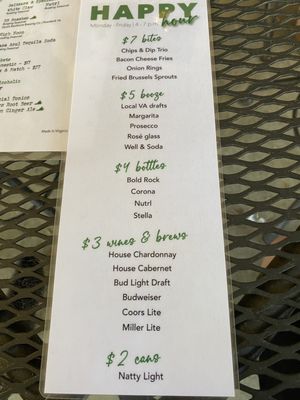 HAPPY
hour
Monday - Friday | 4 - 7 p.m.
$7 bites
Chips & Dip Trio
Bacon Cheese Fries
Onion Rings
Fried Brussels Sprouts
$5 booze
Local VA drafts
Margarita
Prosecco
Rosé glass
Well & Soda
$4 bottles
Bold Rock
Corona
Nutrl
Stella
$3 wines & brews
House Chardonnay
House Cabernet
Bud Light Draft
Budweiser
Coors Lite
Miller Lite
$2 cans
Natty Light
White Claw
Nutrl
High Noon
Tequila Soda
Root Beer
Ginger Ale